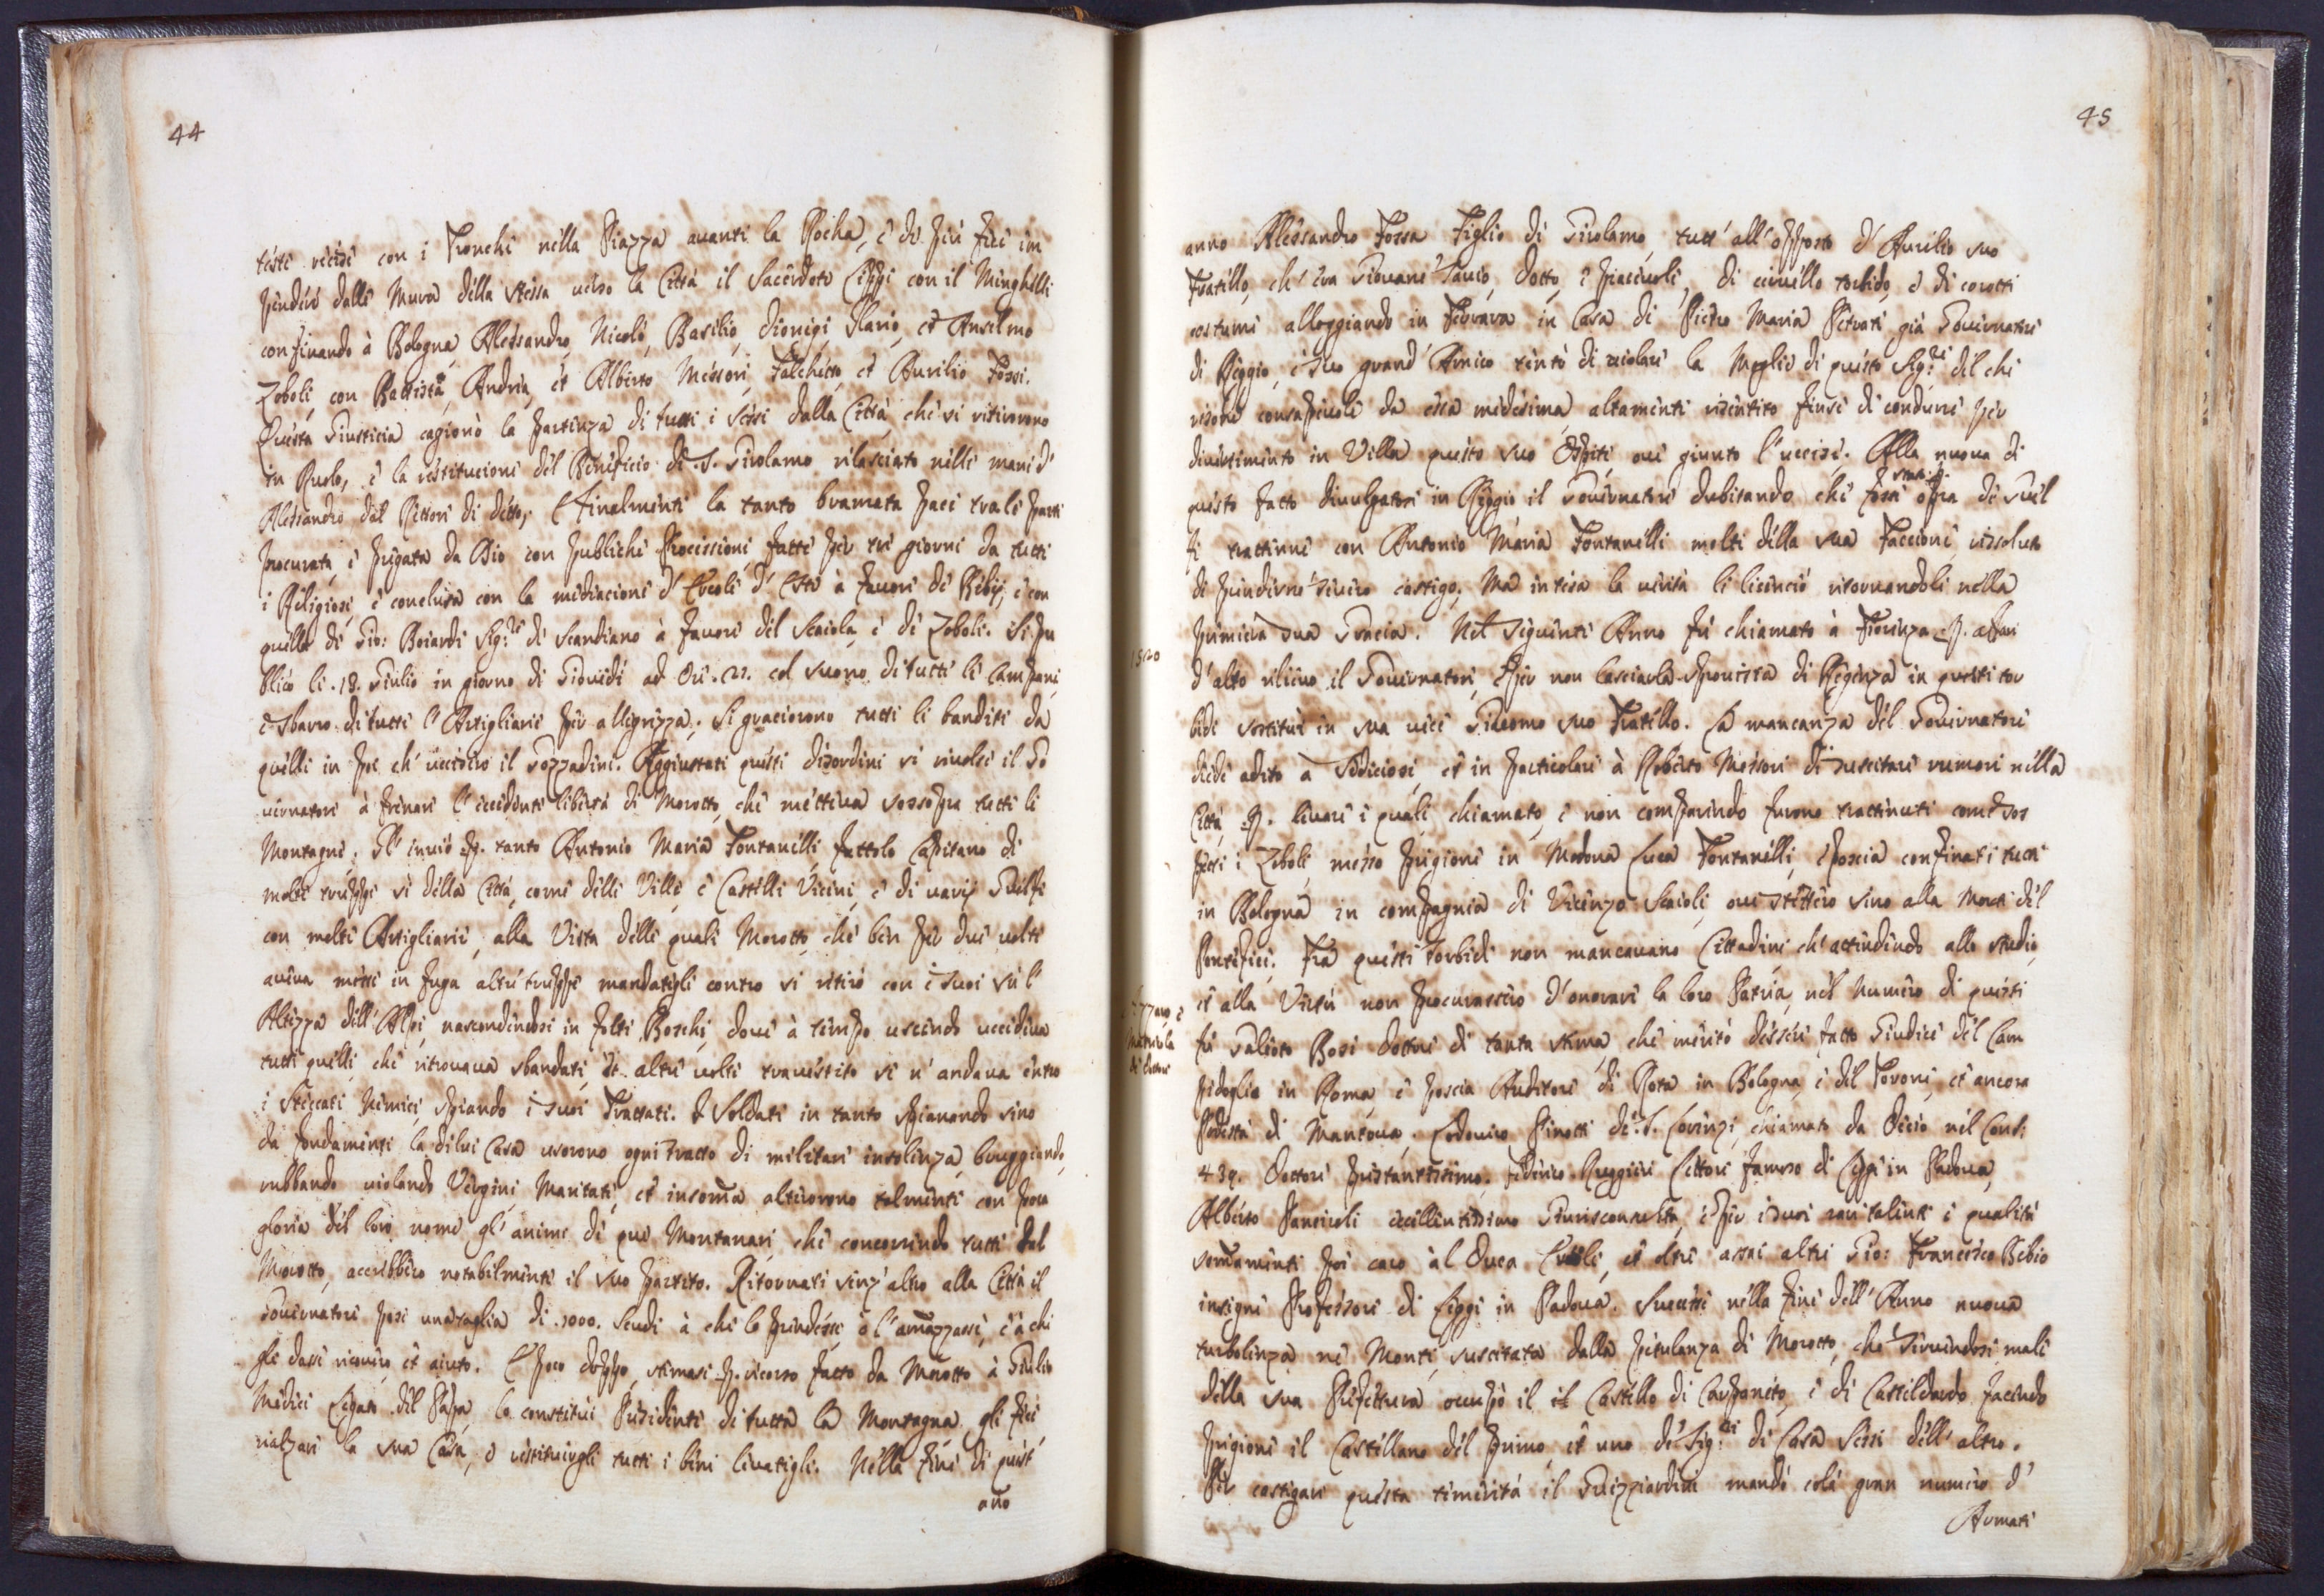 44
teste recise con i Tronchi nella Piazza auanti la Rocha, e di più fece im
pendere dalle Mura della stessa uerso la Città il Sacerdote Ceppi con il Minghelli
confinando à Bologna Alessandro, Nicolò, Basilio, Dionigi, Ilario, et Anselmo
Zoboli, con Battista, Andrea, et Alberto Messori, Falchetto, et Aurelio Fossi.
Questa Giusticia cagionò la partenza di tutti i Sessi dalla Città, che si ritirorono
in Ruolo, e la restitucione del Beneficio di S. Girolamo rilasciato nelle mani d'
Alessandro dal Rettore di detto, E finalmente la tanto bramata pace tra le parti
procurata, e pregata da Dio con publiche Processioni fatte per tre giorni da tutti
i Religiosi, e conclusa con la mediacione d' Ercole d' Este à fauore de Bebij, e con
quella di Gio: Boiardi Sig:re di Scandiano à fauore del Scaiola, e di Zoboli. Si pu
blicò li .18. Giulio in giorno di Giouedì ad Ore .21. col suono di tutte le Campane,
e sbarro di tutte l' Artigliarie per allegrezza. Si graciorono tutti li banditi da
quelli in poi ch' uccisero il Gozzadini. Aggiustati questi disordini si riuolse il Go
uernatore à frenare l' eccedente libertà di Morotto, che metteua sossopra tutte le
Montagne. Gl' inuiò p. tanto Antonio Maria Fontanelli fattolo Capitano di
molte truppe sì della Città, come delle Ville, e Castelli Vicini, e di uarij Guelfi
con molte Artigliarie, alla Vista delle quali Morotto, che ben per due uolte
aueua messe in fuga altre truppe mandategli contro si ritirò con i suoi sù l'
Altezza dell' Alpi, nascondendosi in folti Boschi, doue à tempo uscendo uccideua
tutti quelli, che ritrouaua sbandati, et altre uolte trauestito se n' andaua entro
i Steccati Nemici, spiando i suoi Trattati. I Soldati in tanto spianando sino
da fondamenti la di lui Casa usorono ogni tratto di militare insolenza, bruggiando,
rubbando uiolando Vergini, Maritate, et insoma alterorono talmente con poca
gloria del loro nome gl' animi di que Montanari, che concorrendo tutti dal
Morotto, accrebbero notabilmente il suo partito. Ritornati senz' altro alla Città il
Gouernatore pose una taglia di .1000. Scudi à chi lo prendesse, o l' amazzasse, e à chi
gli dasse ricouero, et aiuto. E poco doppo, stimasi p. ricorso fatto da Morotto à Giulio
Medici Legato del Papa, lo constituì Presidente di tutta la Montagna, gli fece
rialzare la sua Casa, e restituirgli tutti i beni leuatigli. Nella fine di quest'
año
45
anno Alessandro Fossa Figlio di Girolamo, tutt' all' opposto d' Aurelio suo
Fratello, ch' era Giouane Sauio, dotto, e piaceuole, di ceruello torbido, e di corotti
costumi alloggiando in Ferrara in Casa di Pietro Maria Petrati già Gouernatore
di Reggio, e suo grand' Amico tentò di uiolare la Moglie di questo Sig:re del che
resone consapeuole da essa medesima, altamente risentito finse di condurre per
diuertimento in Villa questo suo Ospite, oue giunto l' uccise. Alla nuoua di
questo fatto diuulgatosi in Reggio il Gouernatore dubitando che fosse opra de Guel
fi trattenne con Antonio Maria Fontanelli molti della sua Faccione, rissoluto
di prenderne seuero castigo. Ma intesa la uerità li licenciò ritornandoli nella
primiera sua Gracia. Nel seguente Anno fù chiamato à Fiorenza p. affari
1520
d' alto rilieuo il Gouernatore, E per non lasciarla sprouista di Regenza in questi tor
bidi sostituì in sua uece Giacomo suo Fratello. La mancanza del Gouernatore
diede adito a Sediciosi, et in particolare à Roberto Messori di suscitare rumori nella
Città p. leuare i quali chiamato, e non comparendo furono trattenuti come sos
petti i Zoboli, messo prigione in Modona Luca Fontanelli, e poscia confinati tutti
in Bologna in compagnia di Vicenzo Scaioli, oue stettero sino alla Morte del
Pontefice. Fra questi torbidi non mancauano Cittadini ch' attendendo allo studio,
et alla Virtù non procurassero d' onorare la loro Patria, nel numero di questi
Matricola
di dottori
fù Galioto Bosi dottore di tanta stima, che meritò dessere fatto Giudice del Cam
pidoglio in Roma, e poscia Auditore di Rota in Bologna, e del Torone, et ancora
Podestà di Mantoua. Lodouico Pinotti de S. Lorenzi, chiamato da Decio nel Consi:
439. Dottore prestantissimo. Federico Ruggieri Lettore famoso di Leggi in Padoua,
Alberto Panciroli eccellentissimo Giurisconsulto, e per i suoi rari talenti e qualità
somamente poi caro al Duca Ercole, et oltre assai altri Gio: Francesco Bebio
insigne Professore di Leggi in Padoua. Successe nella fine dell' Anno nuoua
turbolenza ne Monti, suscitata dalla petulanza di Morotto, che seruendosi male
della sua Prefettura occupò il il Castello di Carpineto, e di Casteldaldo facendo
prigione il Castellano del primo, et uno de Sig:ri di Casa Sessi dell' altro.
Per castigare questa temerità il Guizziardini mandò colà gran numero d'
Armati